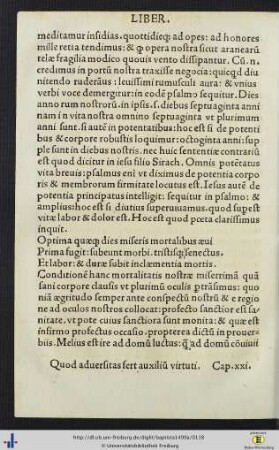 LIBER.
meditamur insidias. quottidieq; ad opes: ad honores
mille retia tendimus: & q opera nostra sicut aranearū
telæ fragilia modico quouis vento dissipantur. Cū. n.
credimus in portū nostra traxisse negocia: quicqd diu
nitendo ruderāus: leuissimi rumusculi aura: & vnius
verbi voce demergitur: in eodē psalmo sequitur. Dies
anno rum nostrorū. in ipsis. s. diebus septuaginta anni
nam in vita nostra omnino septuaginta vt plurimum
anni sunt. si autē in potentatibus: hoc est si de potenti
bus & corpore robustis loquimur: octoginta anni: sup
ple sunt in diebus nostris. nec huic sententiæ contrariū
est quod dicitur in iesu filio Sirach. Omnis potētatus
vita breuis: psalmus eni vt diximus de potentia corpo
ris & membrorum firmitate locutus est. Iesus autē de
potentia principatus intelligit: sequitur in psalmo: &
amplius: hoc est si diutius superuiuamus. quod supest
vitæ labor & dolor est. Hoc est quod pœta clarissimus
inquit.
Optima quæq; dies miseris mortalibus æui
Prima fugit: subeunt morbi. tristisq; senectus.
Et labor: & duræ rabit inclæmentia mortis.
Conditionē hanc mortalitatis nostræ miserrimā quā
sani corpore clausis vt plurimū oculis ptrāsimus: quo
niā ægritudo semper ante conspectū nostrū & e regio
ne ad oculos nostros collocat: profecto sanctior est sa
nitate. vt pote cuius sanctiora sunt monita: & quæ est
infirmo profectus occasio. propterea dictū in prouer-
biis. Melius est ire ad domū luctus: q̄ ad domū cōuiuii
Quod aduersitas fert auxiliū virtuti. Cap. xxi.
http://dl.ub.uni-freiburg.de/diglit/baptista1499a/0118
© Universitätsbibliothek Freiburg